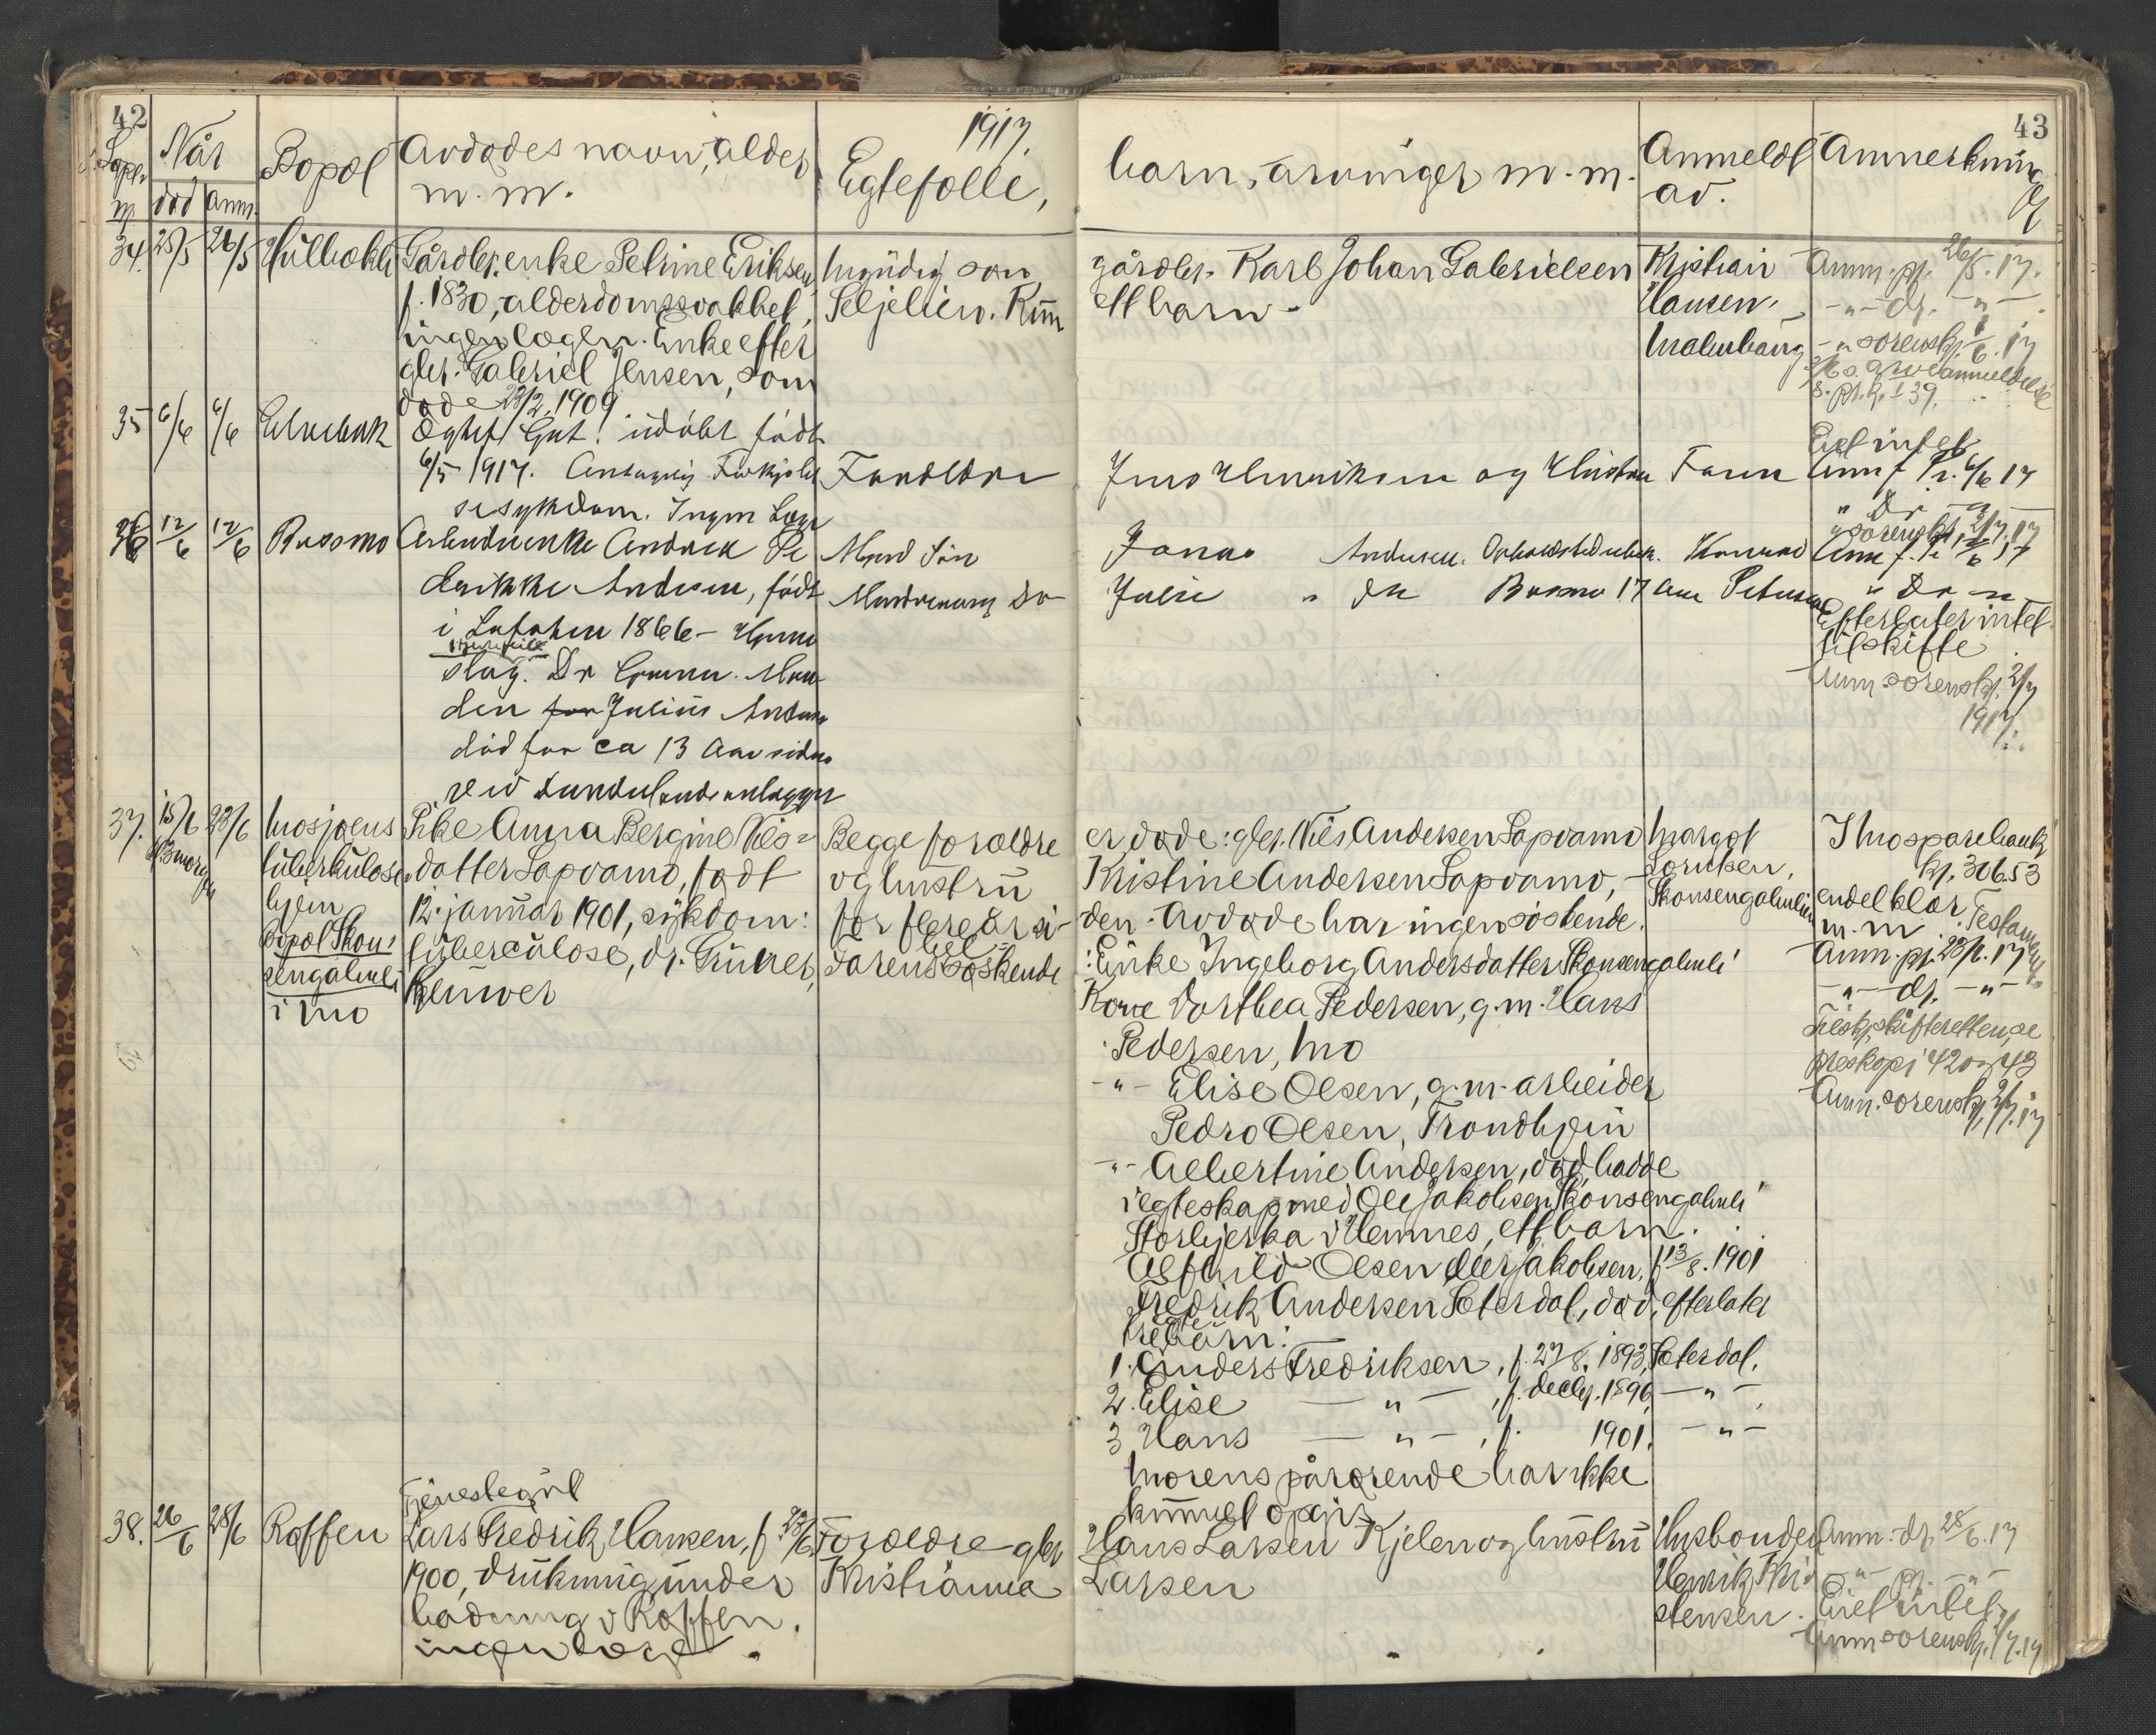 42
1917.
43
Løpe-
Når
Bopel
Avdødes navn, alder
m. m.
Egtefelle,
barn, arvinger m. m.
Anmeldt
av.
Anmerkning
død
anm.
34.
25/5
26/5
Gårdbr. enke Petrine Eriksen
f. 1830, alderdomssvakhet,
ingen læge. Enke efter
gbr. Gabriel Jensen, som
døde 23/2 1909
Myndig søn
Seljelien. Kun
gårdbr. Karl Johan Gabrielsen
ett barn.
Kristian
Hansen,
Anm. pr. 26/5. 17.
-"- dr. -"-
-"- sorenskr. 1/6. 17
arveanmeldelse
s. pr. k. s 39.
35
6/6
6/6
Ægtef Gut. udøbt født
6/5 1917.
sesykdom. Ingen Læge
Forældre
Jens Henriksen og Hustru
Faren
Eiet intet
Anm f Pr. 6/6 17
" Dr -"-
" sorenskr. 2/7. 17
36
12/6
12/6
Russmo
Arbeiderenke Andrea Pe
drikke Andersen, født
i Lufoten 1866 - Hjerne
slag. Dr Grønn. Man
den for Julius Andersen
død for ca 13 Aar siden
ved Dunderlandsanlægget
Mynd Søn
Mindreaarig Dr
Jonas Andersen.
Julie " do Rusmo 17 Aar
Konrad
Petersen
Anm f. Pr 12/6 17
" Dr -"-
Efterlater intet
til skifte
Anm sorenskr. 2/7
1917.
37.
15/6
23/6
Mosjøens
tuberkulose
hjem
Bopel Skon-
sengalmli
i Mo
Pike Anna Bergine Nils-
datter Sapvamo, født
12. januar 1901, sykdom:
tuberculose, dr. Grüner,
Begge forældre
og hustru
for flere år si-
Farens søskende
er døde: gbr. Nils Andersen Sapvamo
Kristine Andersen Sapvamo,
den. Avdøde har ingen søskende.
: Enke Ingeborg Andersdatter Skonsengalmli
Kone Dorthea Pedersen, g. m. Hans
Pedersen, Mo
-"- Elise Olsen, g. m. arbeider
Pedro Olsen, Trondhjem
-"- Albertine Andersen, død, hadde
i egteskap med Ole Jakobsen Skonsengalmli
Storbjerka i Hemnes, ett barn.
Alfhild Olsen eller Jakobsen, f 13/8. 1901
Fredrik Andersen Seterdal, død, efterlater
tre barn:
1. Anders Fredriksen, f. 27/8. 1893, Seterdal.
2. Elise -"-, f. decbr. 1896 -"-
3 Hans -"-, f. 1901. -"-
Morens pårørende har ikke
kunnet opgis
Margot
Lorntsen,
Skonsengalmlien
I Mo sparebank
kr. 306.53
endel klær
m. m. Testament
Anm. pr. 23/6. 17
-"- dr. -"-
Tilskr. skifteretten, se
preskopi 42 og 43
Anm. sorenskr. 2/7. 17
38.
26/6
28/6
Røffen
Tjenestegut
Lars Fredrik Hansen, f. 23/6.
1900, drukning under
badning i Røffen.
ingen læge.
Forældre - gbr
Kristianna
Hans Larsen Kjelen og hustru
Larsen
Husbonden
Henrik Kri-
stensen.
Anm. dr. 28/6. 17
-"- pr. -"-
Eiet intet
Anm sorenskr. 2/7. 17